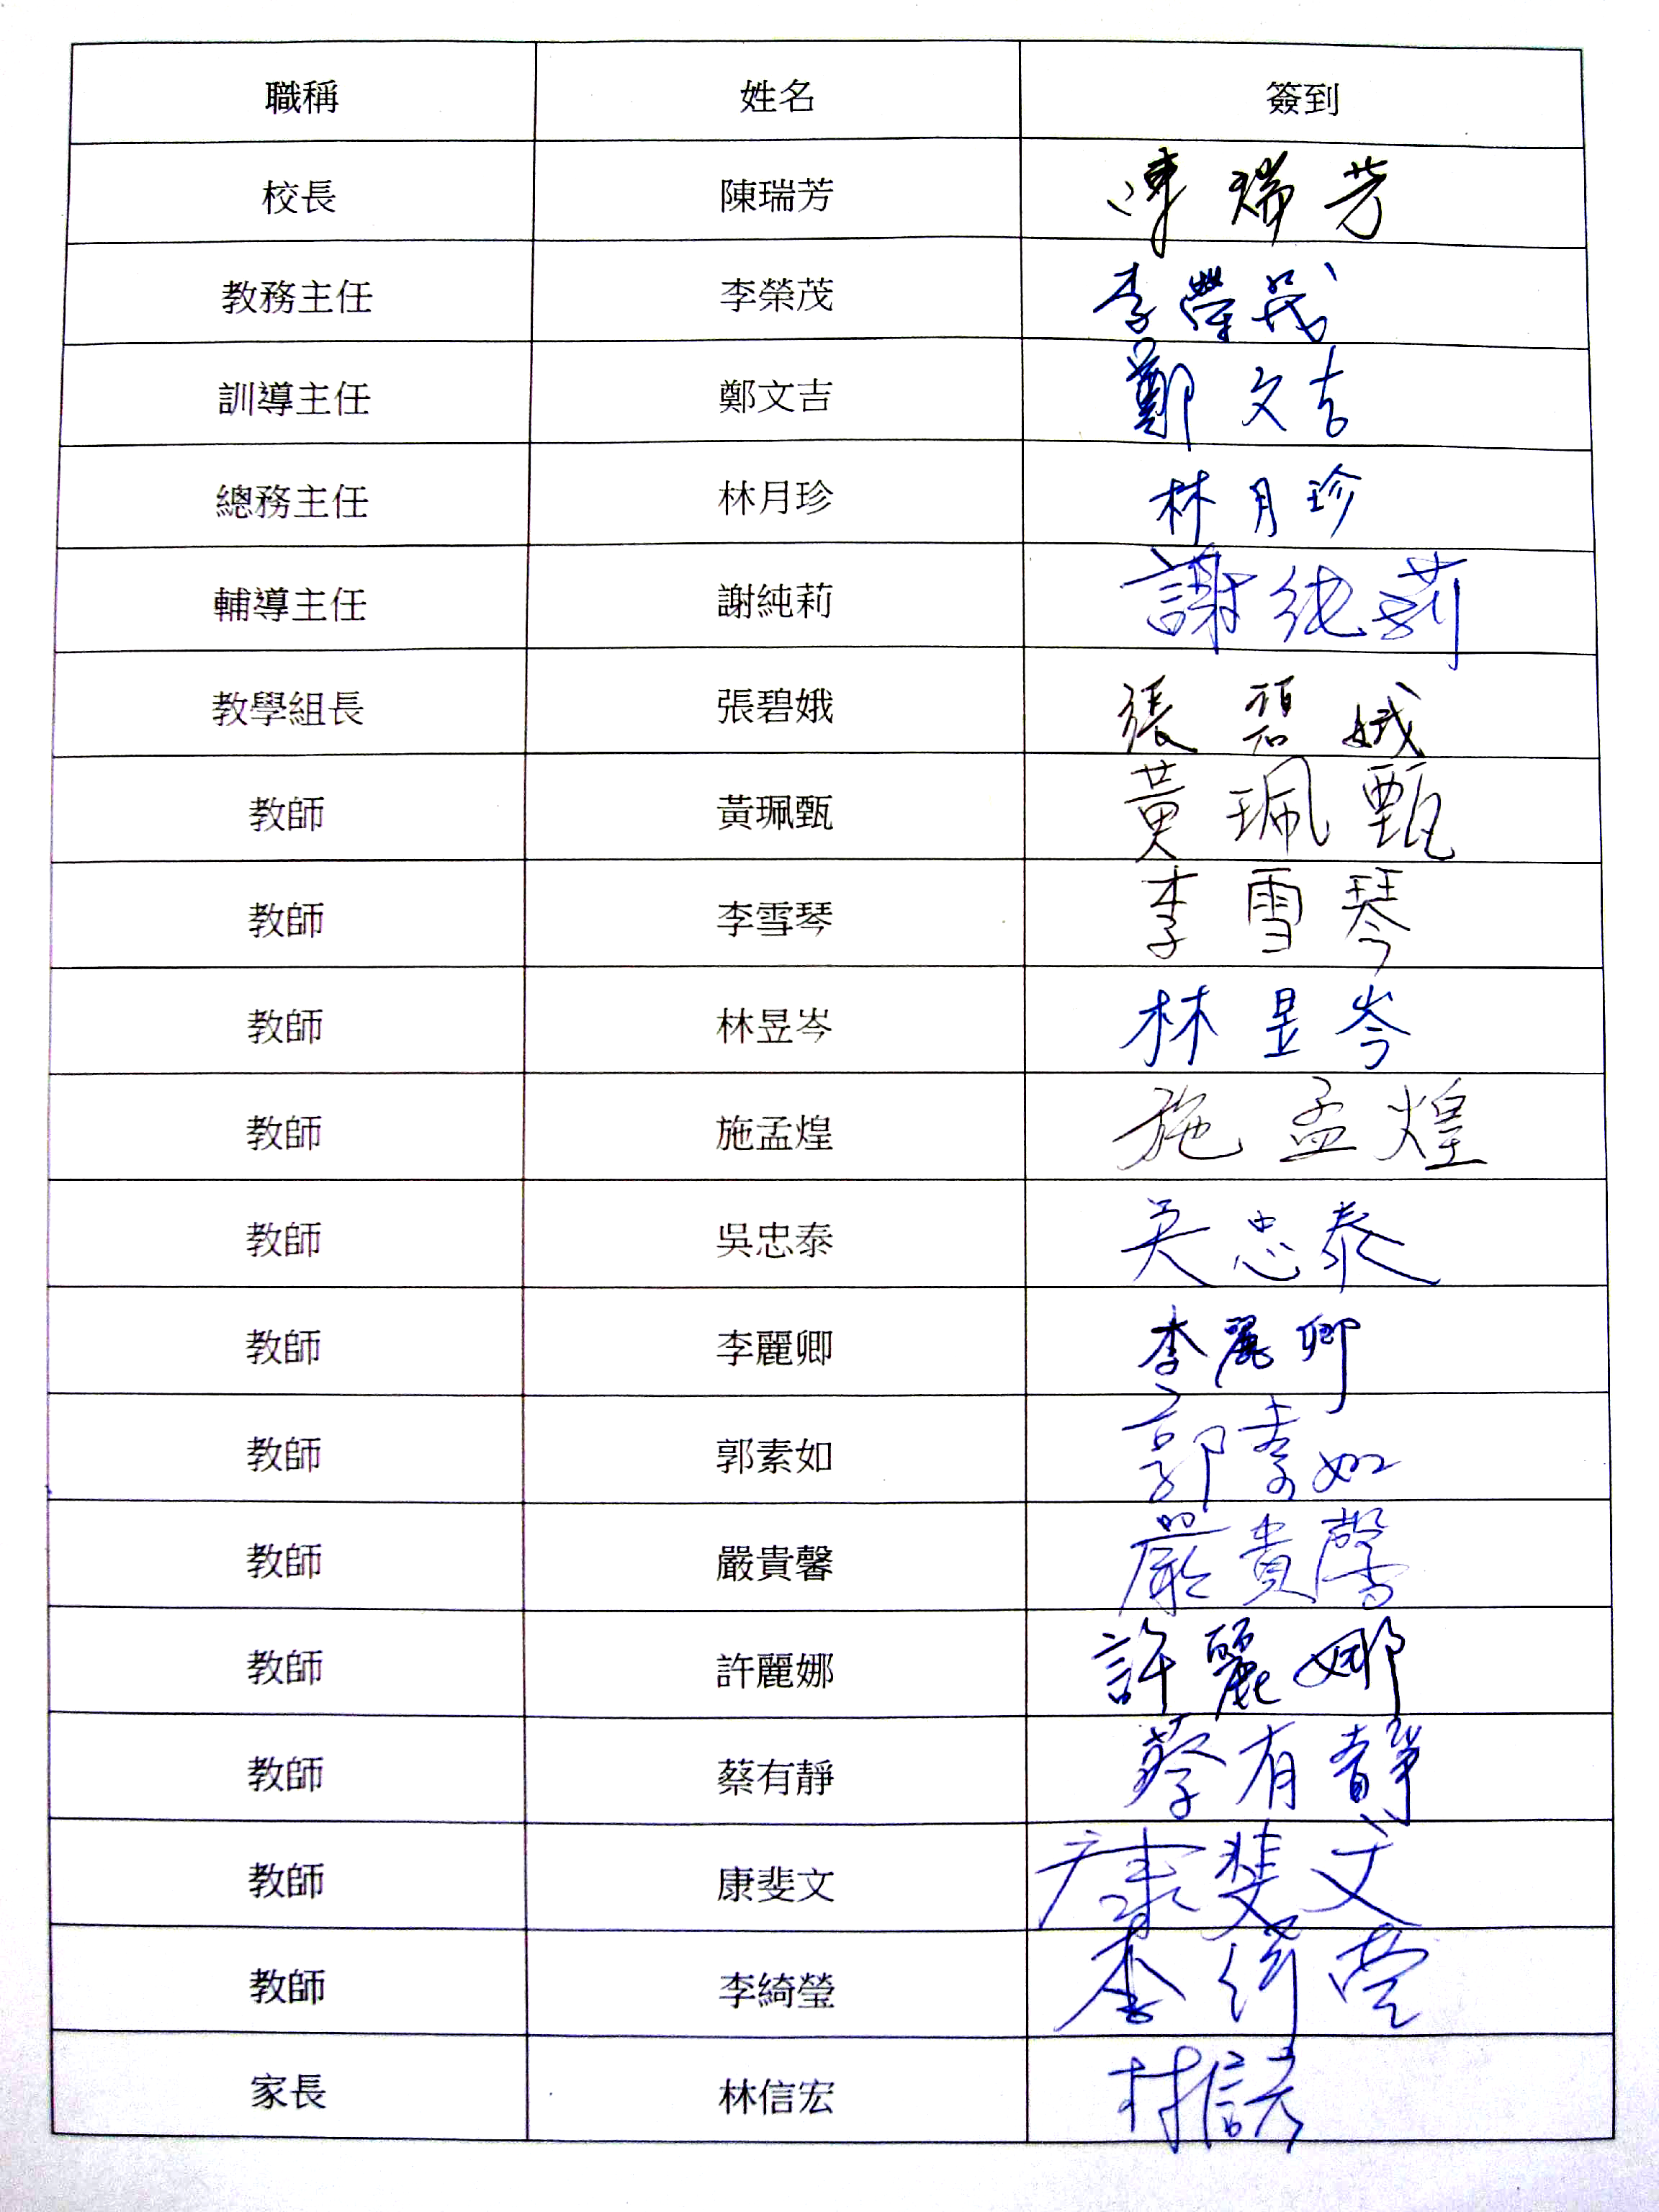 職稱 姓名 簽到
校長 陳瑞芳 陳瑞芳
教務主任 李榮茂 李榮茂
訓導主任 鄭文吉 鄭文吉
總務主任 林月珍 林月珍
輔導主任 謝純莉 謝純莉
教學組長 張碧娥 張碧娥
教師 黃珮甄 黃珮甄
教師 李雪琴 李雪琴
教師 林昱岑 林昱岑
教師 施孟煌 施孟煌
教師 吳忠泰 吳忠泰
教師 李麗卿 李麗卿
教師 郭素如 郭素如
教師 嚴貴馨 嚴貴馨
教師 許麗娜 許麗娜
教師 蔡有靜 蔡有靜
教師 康斐文 康斐文
教師 李綺瑩 李綺瑩
家長 林信宏 林信宏